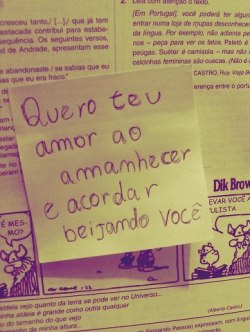 cresceu tanto,/ [...]/ que já tem
destacada contribui para estabe-
equência. Os seguintes versos,
nd de Andrade, apresentam esse
abandonaste / se sabias que eu
as que eu era fraco."
2. Leia com atenção o texto.
[Em Portugal], você poderá ter algun
entrar numa loja de roupas desconhecendo
da língua. Por exemplo, não adianta pe
nos – peça para ver os fatos. Paletó é
Suéter é camisola – mas não
CASTRO, Ruy.
erença entre o port
Quero teu
amor ao
amanhecer
e acordar
beijando você
Dik Brow
É MES-
MO?
EVAR VOCÊ A
aldeia vejo quanto da terra se pode ver no Universo...
minha aldeia é grande como outra qualquer
ou do tamanho do que vejo
o da minha altura...
(Alberto Caeiro)